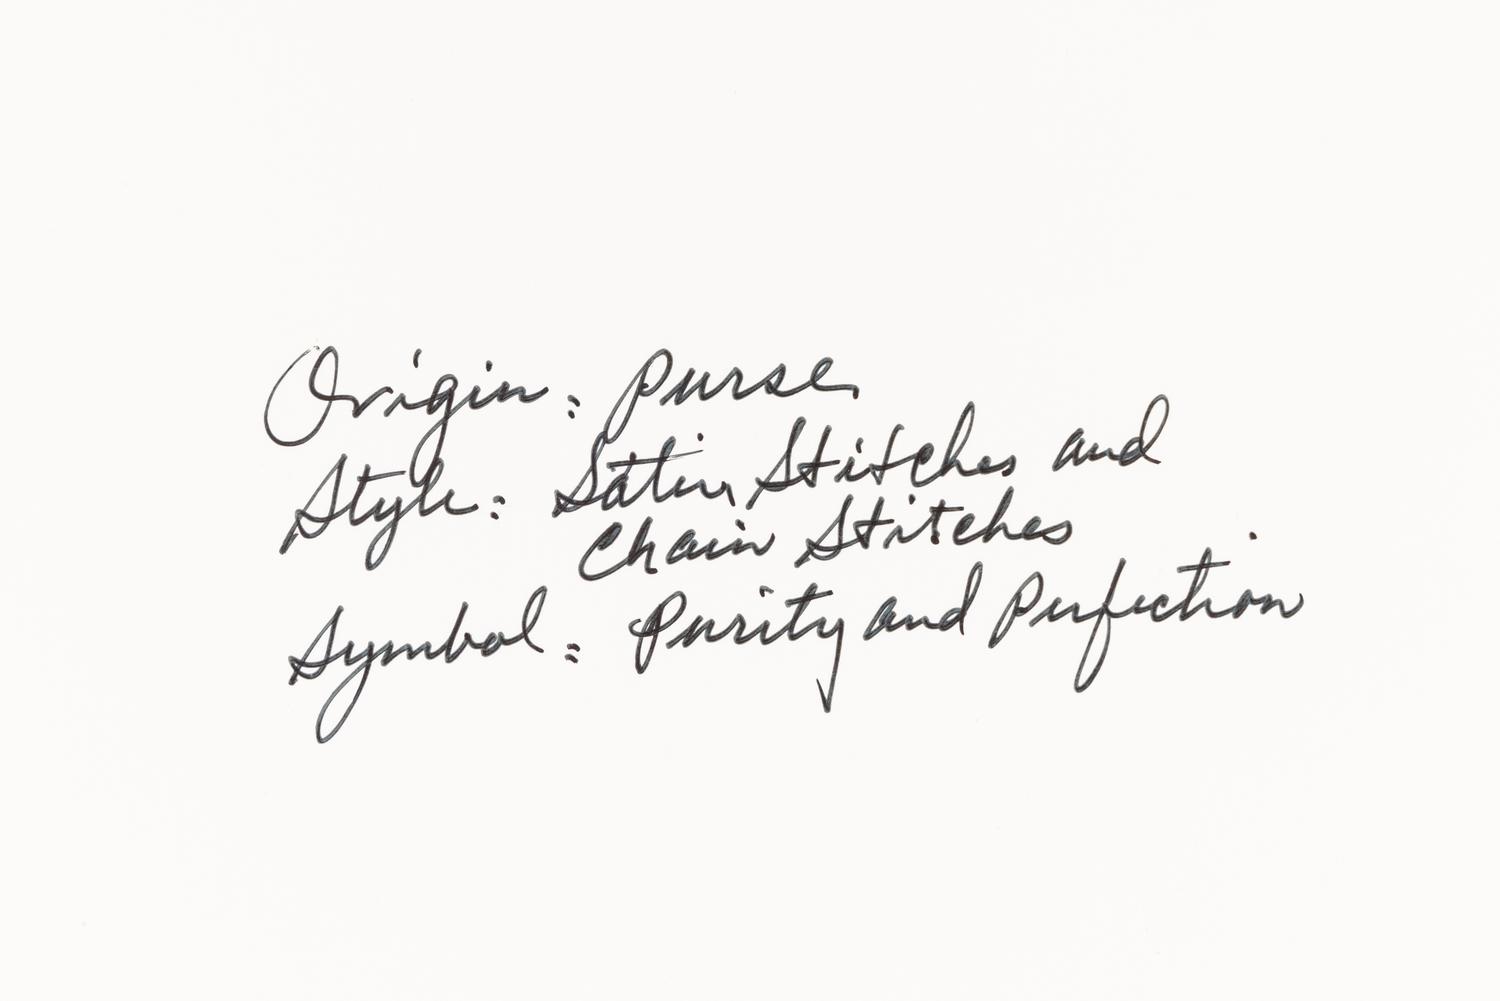 Origin: Purse
Style: Satin Stitches and
Chain Stitches
Symbol: Purity and Perfection